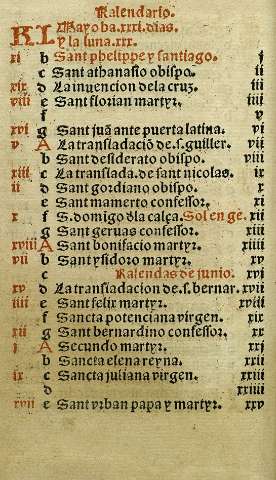 Kalendario.
KL Mayo ha .xxxi. dias.
y la luna .xxx.
xi b Sant phelippe y santiago. j
c Sant athanasio obispo. ij
xix d La inuencion dela cruz. iij
viij e Sant florian martyr. iiij
f v
xvj g Sant juã ante puerta latina. vj
v A La transladaciõ de .s. guiller. vij
b Sant desiderato obispo. viij
xiij c La translada. de sant nicolas. ix
ij d Sant gordiano obispo. x
e Sant mamerto confessor. xj
x f S. domigo dla calça. Sol en ge. xij
g Sant geruas confessor. xiij
xviij A Sant bonifacio martyr. xiiij
vij b Sant ysidoro martyr. xv
c Kalendas de junio. xvj
xv d La transladacion de .s. bernar. xvij
iiij e Sant felix martyr. xviij
f Sancta potenciana virgen. xix
xij g Sant bernardino confessor. xx
j A Secundo martyr. xxj
b Sancta elena reyna. xxij
ix c Sancta juliana virgen. xxiij
d xxiiij
xvij e Sant vrban papa y martyr. xxv